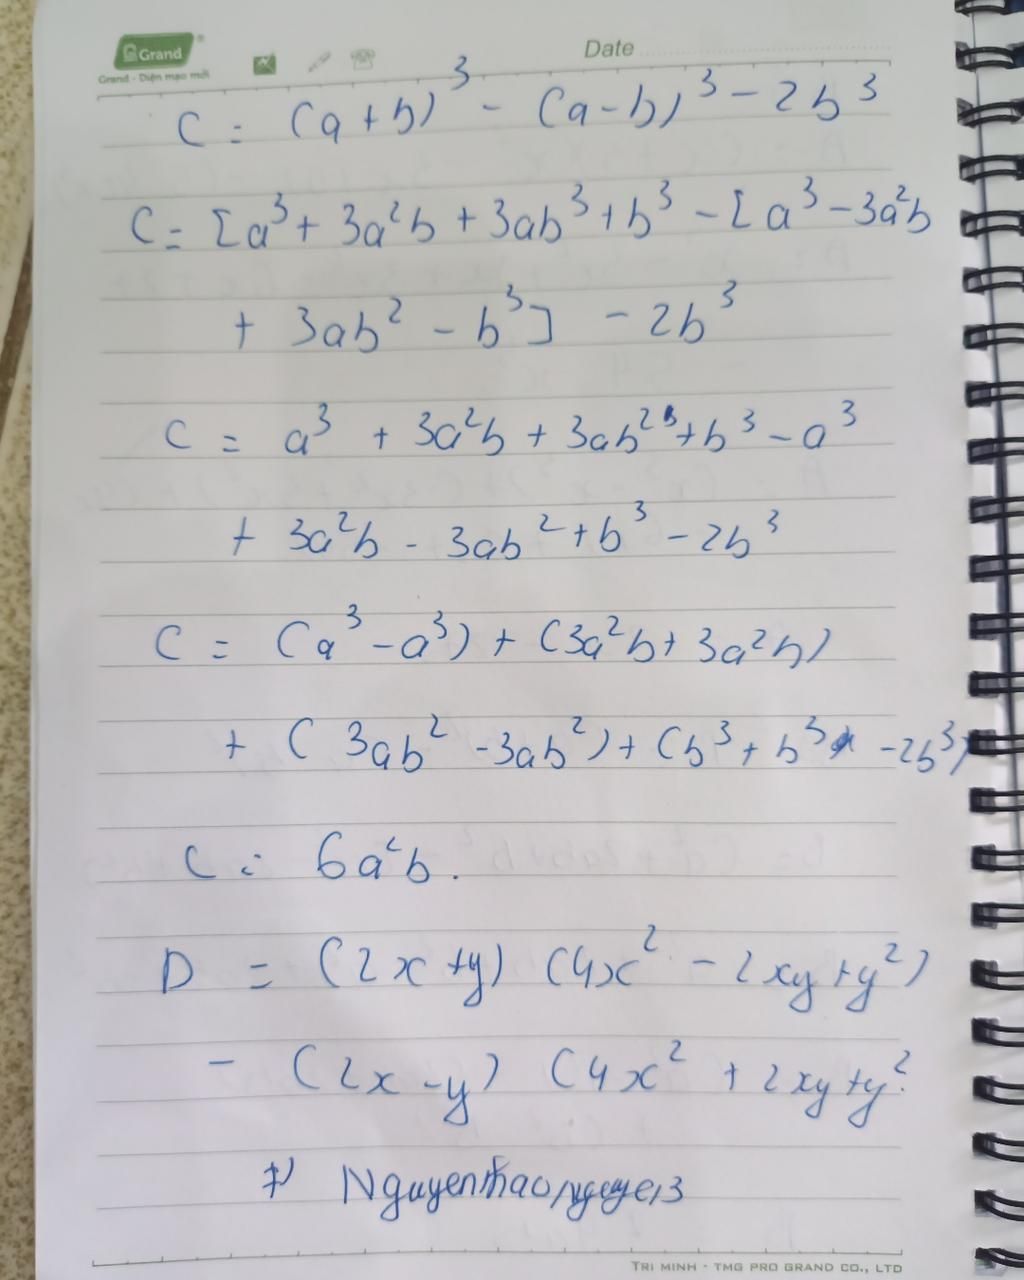 Grand
Grand - Diện mạo mới
Date
C = (a+b)³ - (a-b)³ - 2b³
C = [a³ + 3a²b + 3ab³ + b³ - [a³ - 3a²b
+ 3ab² - b³] - 2b³
C = a³ + 3a²b + 3ab² + b³ - a³
+ 3a²b - 3ab² + b³ - 2b³
C = (a³ - a³) + (3a²b + 3a²b)
+ (3ab² - 3ab²) + (b³ + b³ - 2b³)
C = 6a²b.
D = (2x+y) (4x² - 2xy + y²)
- (2x - y) (4x² + 2xy + y²
TRI MINH - TMG PRO GRAND CO., LTD